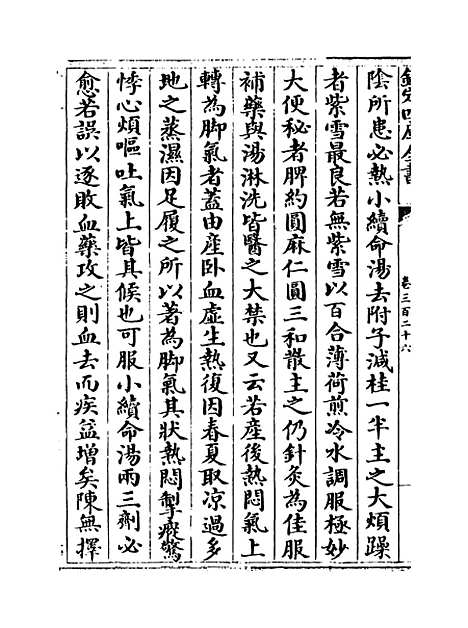 欽定四庫全書
卷三百二十六
陰所患必熱小續命湯去附子減桂一半主之大煩躁
者紫雪最良若無紫雪以百合薄荷煎冷水調服極妙
大便秘者脾約圓麻仁圓三和散主之仍針灸為佳服
補藥與湯淋洗皆醫之大禁也又云若産後熱悶氣上
轉為脚氣者蓋由産卧血虛生熱復因春夏取凉過多
地之蒸濕因足履之所以著為脚氣其狀熱悶掣瘲驚
悸心煩嘔吐氣上皆其候也可服小續命湯兩三劑必
愈若誤以逐敗血藥攻之則血去而疾益增矣陳無擇